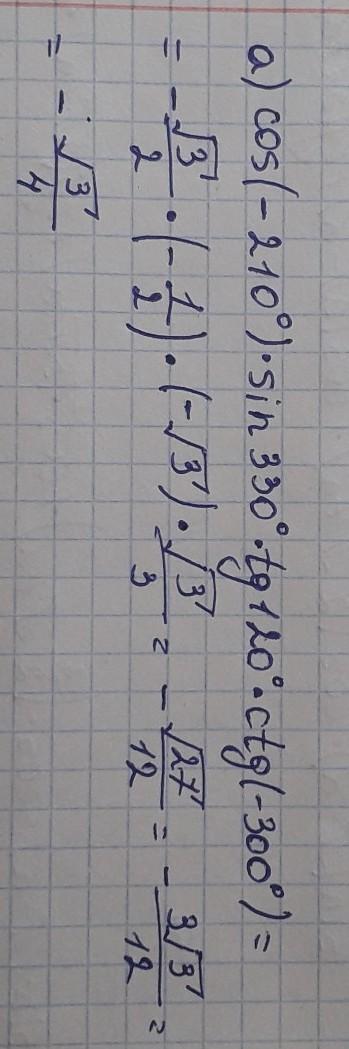 а) cos(-210°)·sin330°·tg120°·ctg(-300°) =
= -√3/2 · (-1/2) · (-√3) · √3/3 = -√27/12 = -3√3/12 =
= -√3/4